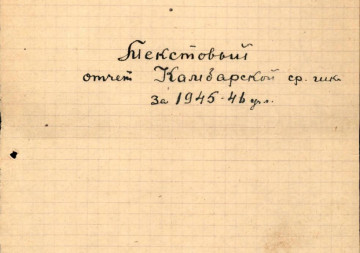 Текстовый
отчет Камбарской ср. шк.
за 1945-46 уч.